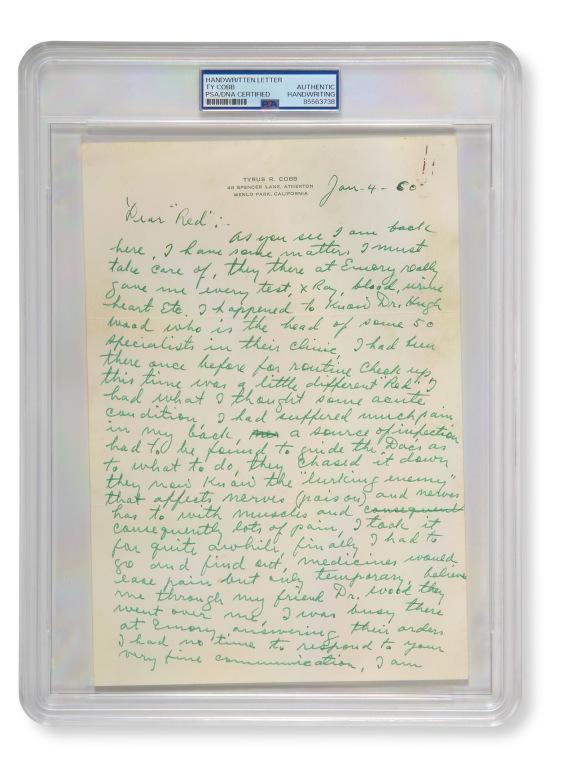 HANDWRITTEN LETTER
TY COBB AUTHENTIC
PSA/DNA CERTIFIED HANDWRITING
PSA 85563738
TYRUS R. COBB
48 SPENCER LANE, ATHERTON
MENLO PARK, CALIFORNIA
Jan-4-60
Dear "Red":-
As you see I am back
here, I have some matters I must
take care of, they there at Emory really
gave me every test, x Ray, blood, urine
heart Etc. I happened to know Dr. Hugh
Wood who is the head of some 50
specialists in their clinic, I had been
there once before for routine check up,
this time was a little different "Red" I
had what I thought some acute
condition, I had suffered much pain
in my back, a source of infection
had to be found to guide the Docs as
to what to do, they chased it down
they now know the "lurking enemy"
that affects nerves (poison) and nerves
has to with muscles and consequent
consequently lots of pain, I took it
for quite awhile, finally I had to
go and find out, medicines would
ease pain but only temporary, believe
me through my friend Dr. Wood they
went over me, I was busy there
at Emory answering their orders
I had no time to respond to your
very fine communication, I am